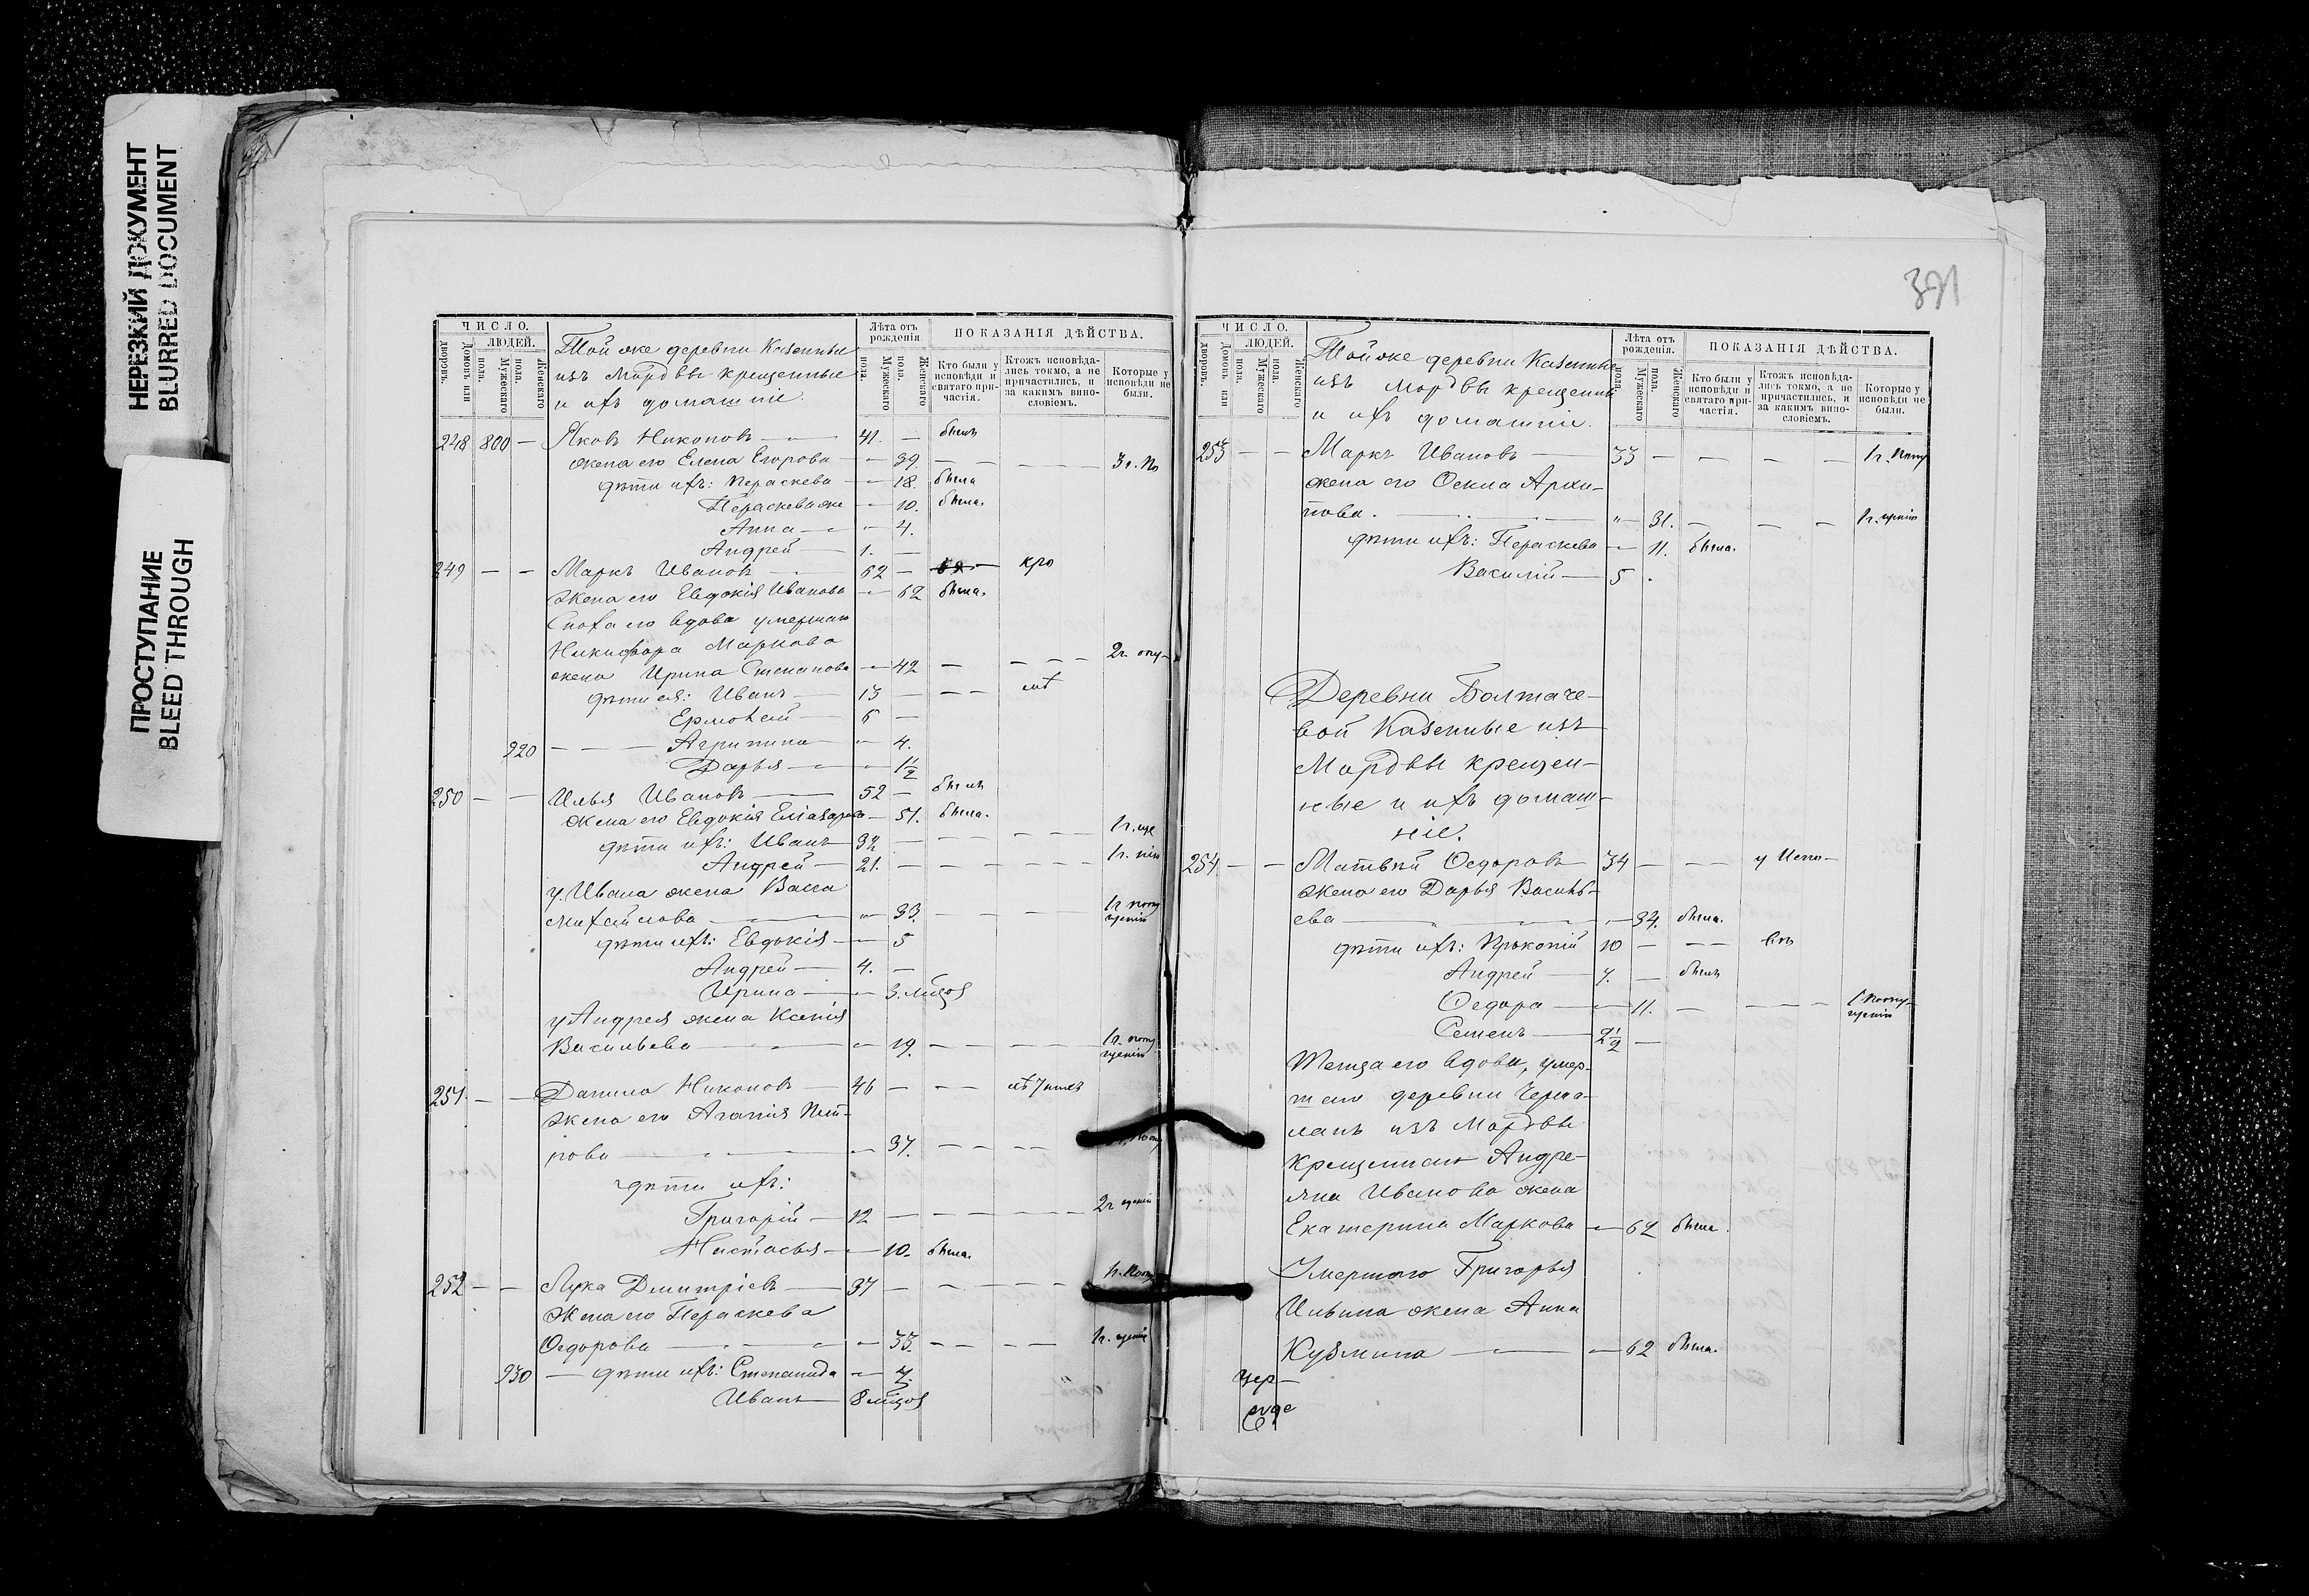 НЕРЕЗКИЙ ДОКУМЕНТ
BLURRED DOCUMENT
ПРОСТУПАНИЕ
BLEED THROUGH
ЧИСЛО.
ЛЮДЕЙ.
Домовъ или дворовъ.
Мужескаго пола.
Женскаго пола.
Той же деревни Казенные
изъ Мордвы крещенные
и ихъ домашніе.
Лѣта отъ рожденія
Мужескаго пола.
Женскаго пола.
ПОКАЗАНІЯ ДѢЙСТВА.
Кто были у исповѣди и святаго причастія.
Ктожъ исповѣдались токмо, а не причастились, и за какимъ винословіемъ.
Которые у исповѣди не были.
248 800 — Яковъ Никоновъ — 41. — былъ
жена его Елена Егорова — 39. — —
дѣти ихъ: Параскева — 18. была
Параскева же — 10. была.
Анна — 4.
Андрей — 1. —
249 — — Маркъ Ивановъ — 62 —
жена его Евдокія Иванова — 62 была.
Сноха его вдова умершаго
Никифора Маркова
жена Ирина Степанова — 42 — — — —
дѣти ея: Иванъ — 13 — — —
Ермолай — 6 —
920 — — — Агрипина — 4.
Дарья — 1½
250 — — Илья Ивановъ — 52 — былъ
жена его Евдокія — 51. была.
дѣти ихъ: Иванъ 32 —
Андрей — 21. — — — — —
у Ивана жена Васса
Михайлова — 33. — — —
дѣти ихъ: Евдокія — 5
Андрей — 4. —
Ирина — 3. мѣцов
у Андрея жена Ксенія
Васильева — 19. — — — —
251. — — Данило Никоновъ — 46 — — —
жена его Агапія Пет-
рова — 37. — — —
дѣти ихъ:
Григорій — 12 — — — — —
Настасья — 10. была.
252 — — Лука Дмитріевъ — 37 — — — —
жена его Параскева
Ѳедорова — 33. — — — —
930 — дѣти ихъ: Степанида — 7.
Иванъ — 8 мѣцов
391
ЧИСЛО.
ЛЮДЕЙ.
Домовъ или дворовъ.
Мужескаго пола.
Женскаго пола.
Той же деревни Казенные
изъ Мордвы крещенные
и ихъ домашніе.
Лѣта отъ рожденія.
Мужескаго пола.
Женскаго пола.
ПОКАЗАНІЯ ДѢЙСТВА.
Кто были у исповѣди и святаго причастія.
Ктожъ исповѣдались токмо, а не причастились, и за какимъ винословіемъ.
Которые у исповѣди не были.
253 — — Маркъ Ивановъ — 33 — — — —
жена его Архи-
пова. — 31. — — —
дѣти ихъ: Параскева — 11. была.
Василій — 5 .
Деревни Болтаче-
вой Казенные изъ
Мордвы крещен-
ные и ихъ домаш-
ніе.
254 — — Матвѣй Ѳедоровъ — 34 — — у Испо-
жена его Дарья Василь-
ева — 34. была.
дѣти ихъ: Прокопій 10 — — —
Андрей — 7. — былъ
Ѳедора — 11. — — —
Семенъ — 2½ —
Теща его вдова, умер-
шаго деревни
изъ Мордвы
крещеннаго Андре-
яна Иванова жена
Екатерина Маркова — 62 была.
Умершаго Григорья
Ильина жена Анна
Кузмина — 62 была.